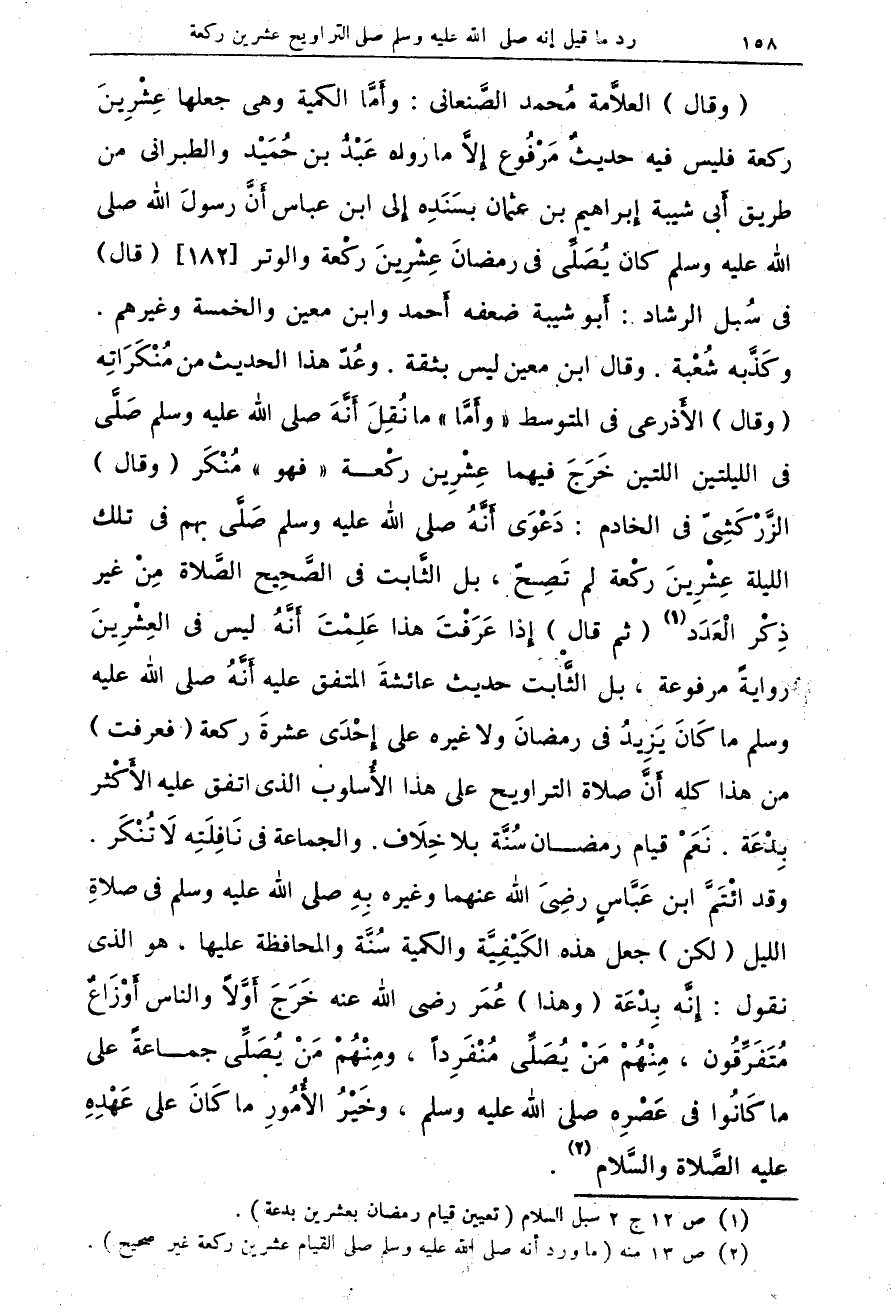 ١٥٨ رد ما قيل إنه صلى الله عليه وسلم صلى التراويح عشرين ركعة
( وقال ) العلاَّمة مُحمد الصَّنعانى : وأَمَّا الكمية وهى جعلها عِشْرِينَ
ركعة فليس فيه حديثٌ مَرْفُوع إلاَّ مارواه عَبْدُ بن حُمَيْد والطبرانى من
طريق أبى شيبة إبراهيم بن عثمان بسَنَدِه إلى ابن عباس أَنَّ رسولَ الله صلى
الله عليه وسلم كان يُصَلِّى فى رمضانَ عِشْرِينَ ركْعة والوتر [١٨٢] ( قال)
فى سُبل الرشاد : أبو شيبة ضعفه أحمد وابن معين والخمسة وغيرهم .
وكَذَّبه شُعْبة . وقال ابن معين ليس بثقة . وعُدّ هذا الحديث من مُنْكَرَاتِه
( وقال ) الأَذرعى فى المتوسط « وأَمَّا » مانُقِلَ أَنَّهَ صلى الله عليه وسلم صَلَّى
فى الليلتين اللتين خَرَجَ فيهما عِشْرِين ركعة « فهو » مُنْكَر ( وقال )
الزَّرْكَشِىّ فى الخادم : دَعْوَى أَنَّهُ صلى الله عليه وسلم صَلَّى بهم فى تلك
الليلة عِشْرِينَ ركْعة لم تَصِحّ ، بل الثَّابت فى الصَّحِيح الصَّلاة مِنْ غير
ذِكْر الْعَدَد(١) ( ثم قال ) إذا عَرَفْتَ هذا عَلِمْتَ أَنَّهُ ليس فى العِشْرِينَ
روايةً مرفوعة ، بل الثَّابت حديث عائشةَ المتفق عليه أَنَّهُ صلى الله عليه
وسلم ما كَانَ يَزِيدُ فى رمضانَ ولا غيره على إحْدَى عشرةَ ركعة ( فعرفت )
من هذا كله أَنَّ صلاة التراويح على هذا الأُسلوب الذى اتفق عليه الأَكْثر
بِدْعَة . نَعَمْ قيام رمضان سُنَّة بلا خِلَاف . والجماعة فى نَافِلَتِه لَا تُنْكَر .
وقد ائْتَمَّ ابن عَبَّاسٍ رضِىَ الله عنهما وغيره بِهِ صلى الله عليه وسلم فى صلاةِ
الليل ( لكن ) جعل هذه الكَيْفِيَّة والكمية سُنَّة والمحافظة عليها ، هو الذى
نقول : إنَّه بِدْعَة ( وهذا ) عُمَر رضى الله عنه خَرَجَ أَوَّلاً والناس أَوْزَاعٌ
مُتَفَرِّقُون ، مِنْهُمْ مَنْ يُصَلِّى مُنْفَرِداً ، ومِنْهُمْ مَنْ يُصَلِّى جماعةً على
ما كَانُوا فى عَصْرِه صلى الله عليه وسلم ، وخَيْرُ الأُمُورِ ما كَانَ على عَهْدِهِ
عليه الصَّلاة والسَّلام(٢) .
(١) ص ١٢ ج ٢ سبل السلام ( تعيين قيام رمضان بعشرين بدعة ) .
(٢) ص ١٣ منه ( ما ورد أنه صلى الله عليه وسلم صلى القيام عشرين ركعة غير صحيح ) .